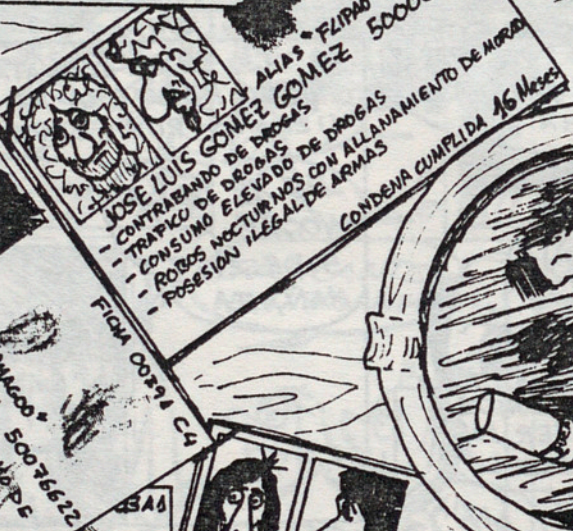 ALIAS "FLIPAO
JOSE LUIS GOMEZ GOMEZ 5000
- CONTRABANDO DE DROGAS
- TRAFICO DE DROGAS
- CONSUMO ELEVADO DE DROGAS
- ROBOS NOCTURNOS CON ALLANAMIENTO DE MORAD
- POSESION ILEGAL DE ARMAS
CONDENA CUMPLIDA 16 MESES
FICHA 00391 C4
MAGOO"
50076622
O DE